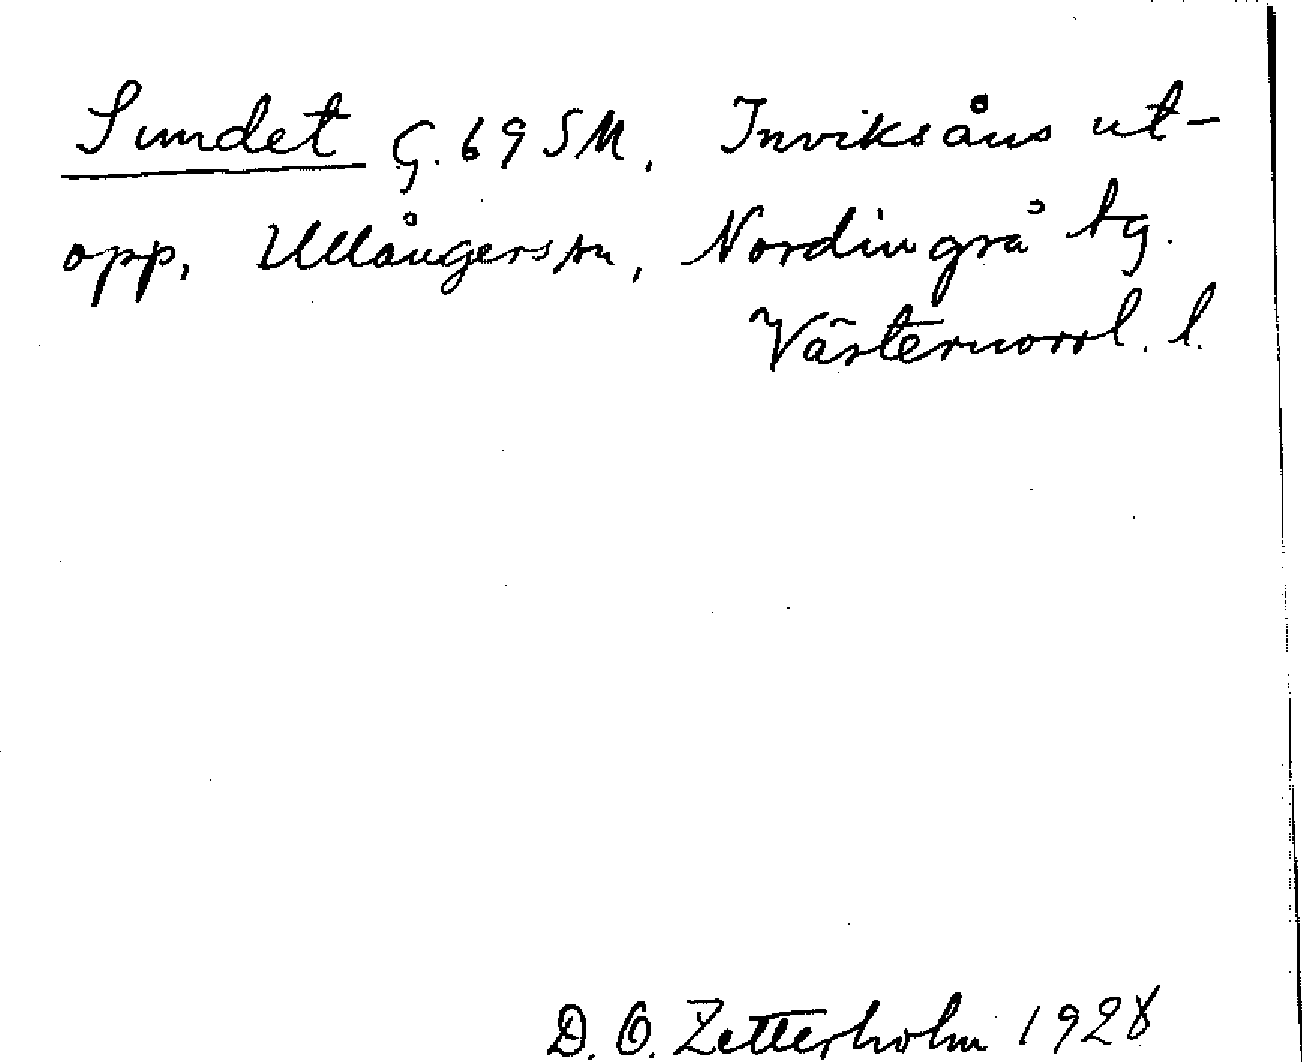 Sundet G. 69 SM. Inviksåns ut-
opp, Ullångers sn, Nordingrå tg.
Västernorrl. l.
D. O. Zetterholm 1928